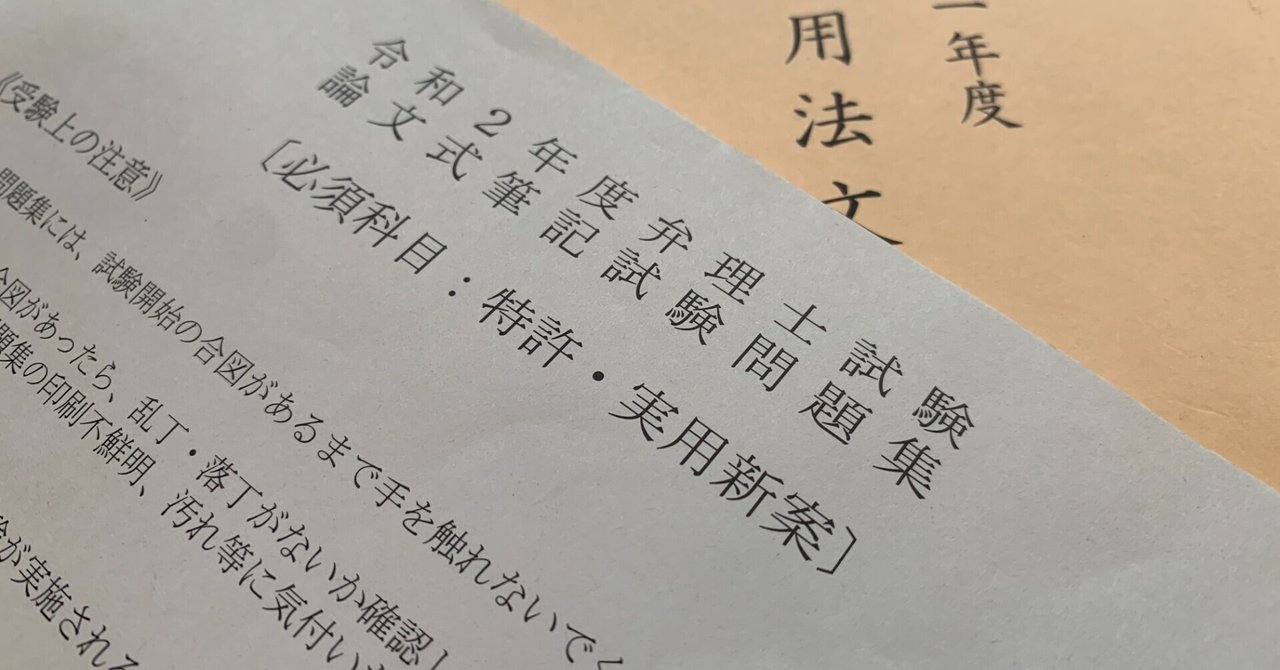 令和2年度弁理士試験
論文式筆記試験問題集
〔必須科目：特許・実用新案〕
《受験上の注意》
問題集には、試験開始の合図があるまで手を触れないでく
合図があったら、乱丁・落丁がないか確認し
題集の印刷不鮮明、汚れ等に気付いた
が実施される
一年度
用法文